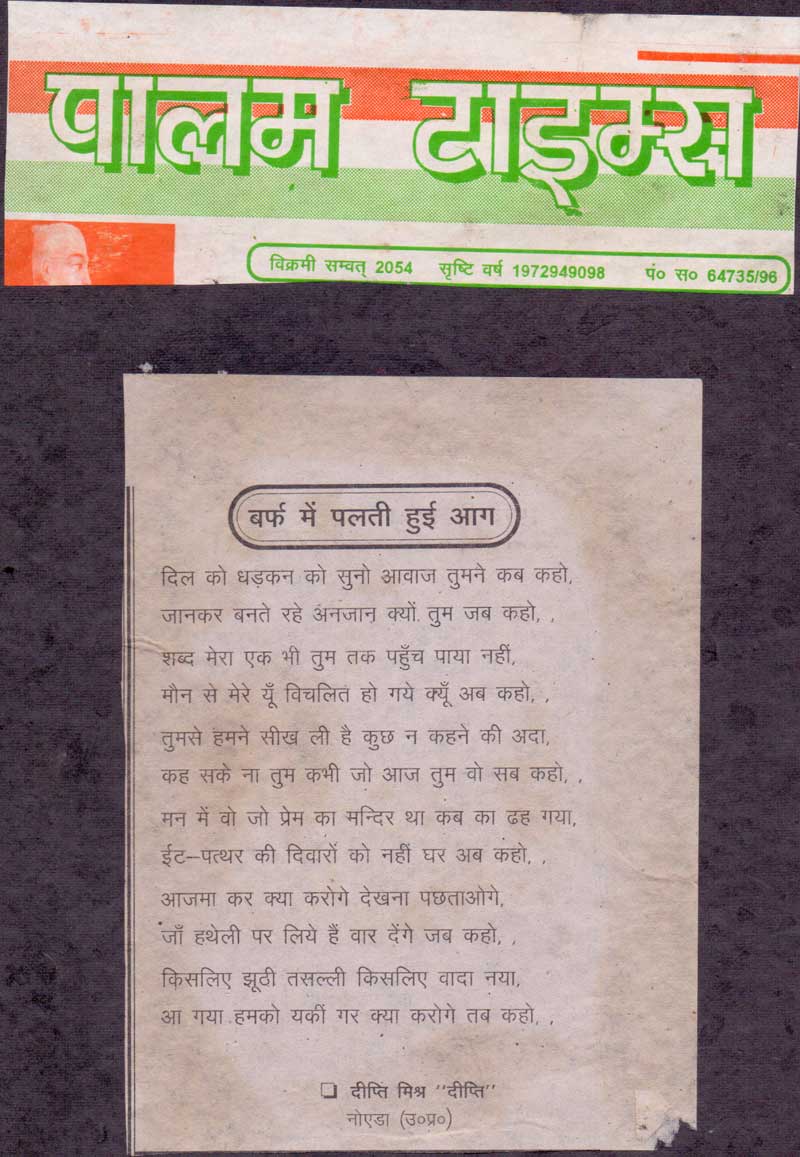 पालम टाइम्स
विक्रमी सम्वत् 2054 सृष्टि वर्ष 1972949098 पं० स० 64735/96
बर्फ में पलती हुई आग
दिल को धड़कन को सुनो आवाज तुमने कब कहो,
जानकर बनते रहे अनजान क्यों तुम जब कहो, ,
शब्द मेरा एक भी तुम तक पहुँच पाया नहीं,
मौन से मेरे यूँ विचलित हो गये क्यूँ अब कहो, ,
तुमसे हमने सीख ली है कुछ न कहने की अदा,
कह सके ना तुम कभी जो आज तुम वो सब कहो, ,
मन में वो जो प्रेम का मन्दिर था कब का ढह गया,
ईट–पत्थर की दिवारों को नहीं घर अब कहो, ,
आजमा कर क्या करोगे देखना पछताओगे,
जाँ हथेली पर लिये हैं वार देंगे जब कहो, ,
किसलिए झूठी तसल्ली किसलिए वादा नया,
आ गया हमको यकीं गर क्या करोगे तब कहो, ,
❑ दीप्ति मिश्र "दीप्ति"
नोएडा (उ०प्र०)